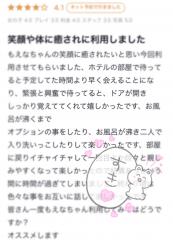 ★★★★☆ 4.1
女の子 4.0 プレイ 3.5 料金 4.0 スタッフ 3.5 写真 5.0
笑顔や体に癒されに利用しました
もえなちゃんの笑顔に癒されたいと思い今回利
用させてもらいました、ホテルの部屋で待って
ると予定してた時間より早く会えることにな
り、緊張と興奮で待ってると、ドアが開き
しっかり覚えててくれて嬉しかったです、お風
呂が沸くまで
オプションの事をしたり、お風呂が沸き二人入
り洗いっこしたりして楽しかったです、部屋
に戻りイチャイチャして
みやすくなって楽しかっ
間に時間が過ぎてしまいまし
色々な事をお互いに話し
皆さん一度もえなちゃん利用してみ
か？
オススメします